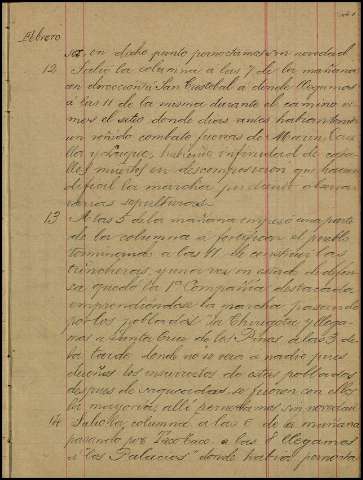 Febrero
en dicho punto pernoctamos sin novedad
12 Salio la columna a las 7 de la mañana
en dirección a San Cristobal a donde llegamos
á las 11 de la misma durante el camino vi-
mos el sitio donde dias antes habian tenido
un reñido combate fuerzas de Marin,
y infinidad de caba-
llos muertos en descomposicion que hacian
dificil la marcha pudiendo observar
varias sepulturas
13 A las 5 de la mañana empeso una parte
de la columna a fortificar el pueblo
terminando a las 11 de construir las
trincheras, y una vez en estado de defen-
sa quedó la 1ª Compañia destacada
emprendiendose la marcha pasando
por los poblados y llega-
mos a Santa Cruz de los Pinos a las 3 de
la tarde donde no se veia a nadie pues
dueños los insurrectos de estos poblados
despues de saquearlos, se fueron con ellos
la mayoria, allí pernoctamos sin novedad
14 Salio la columna a las 6 de la mañana
pasando por Taco Taco, a las 8 llegamos
a "los Palacios" donde habia pernocta